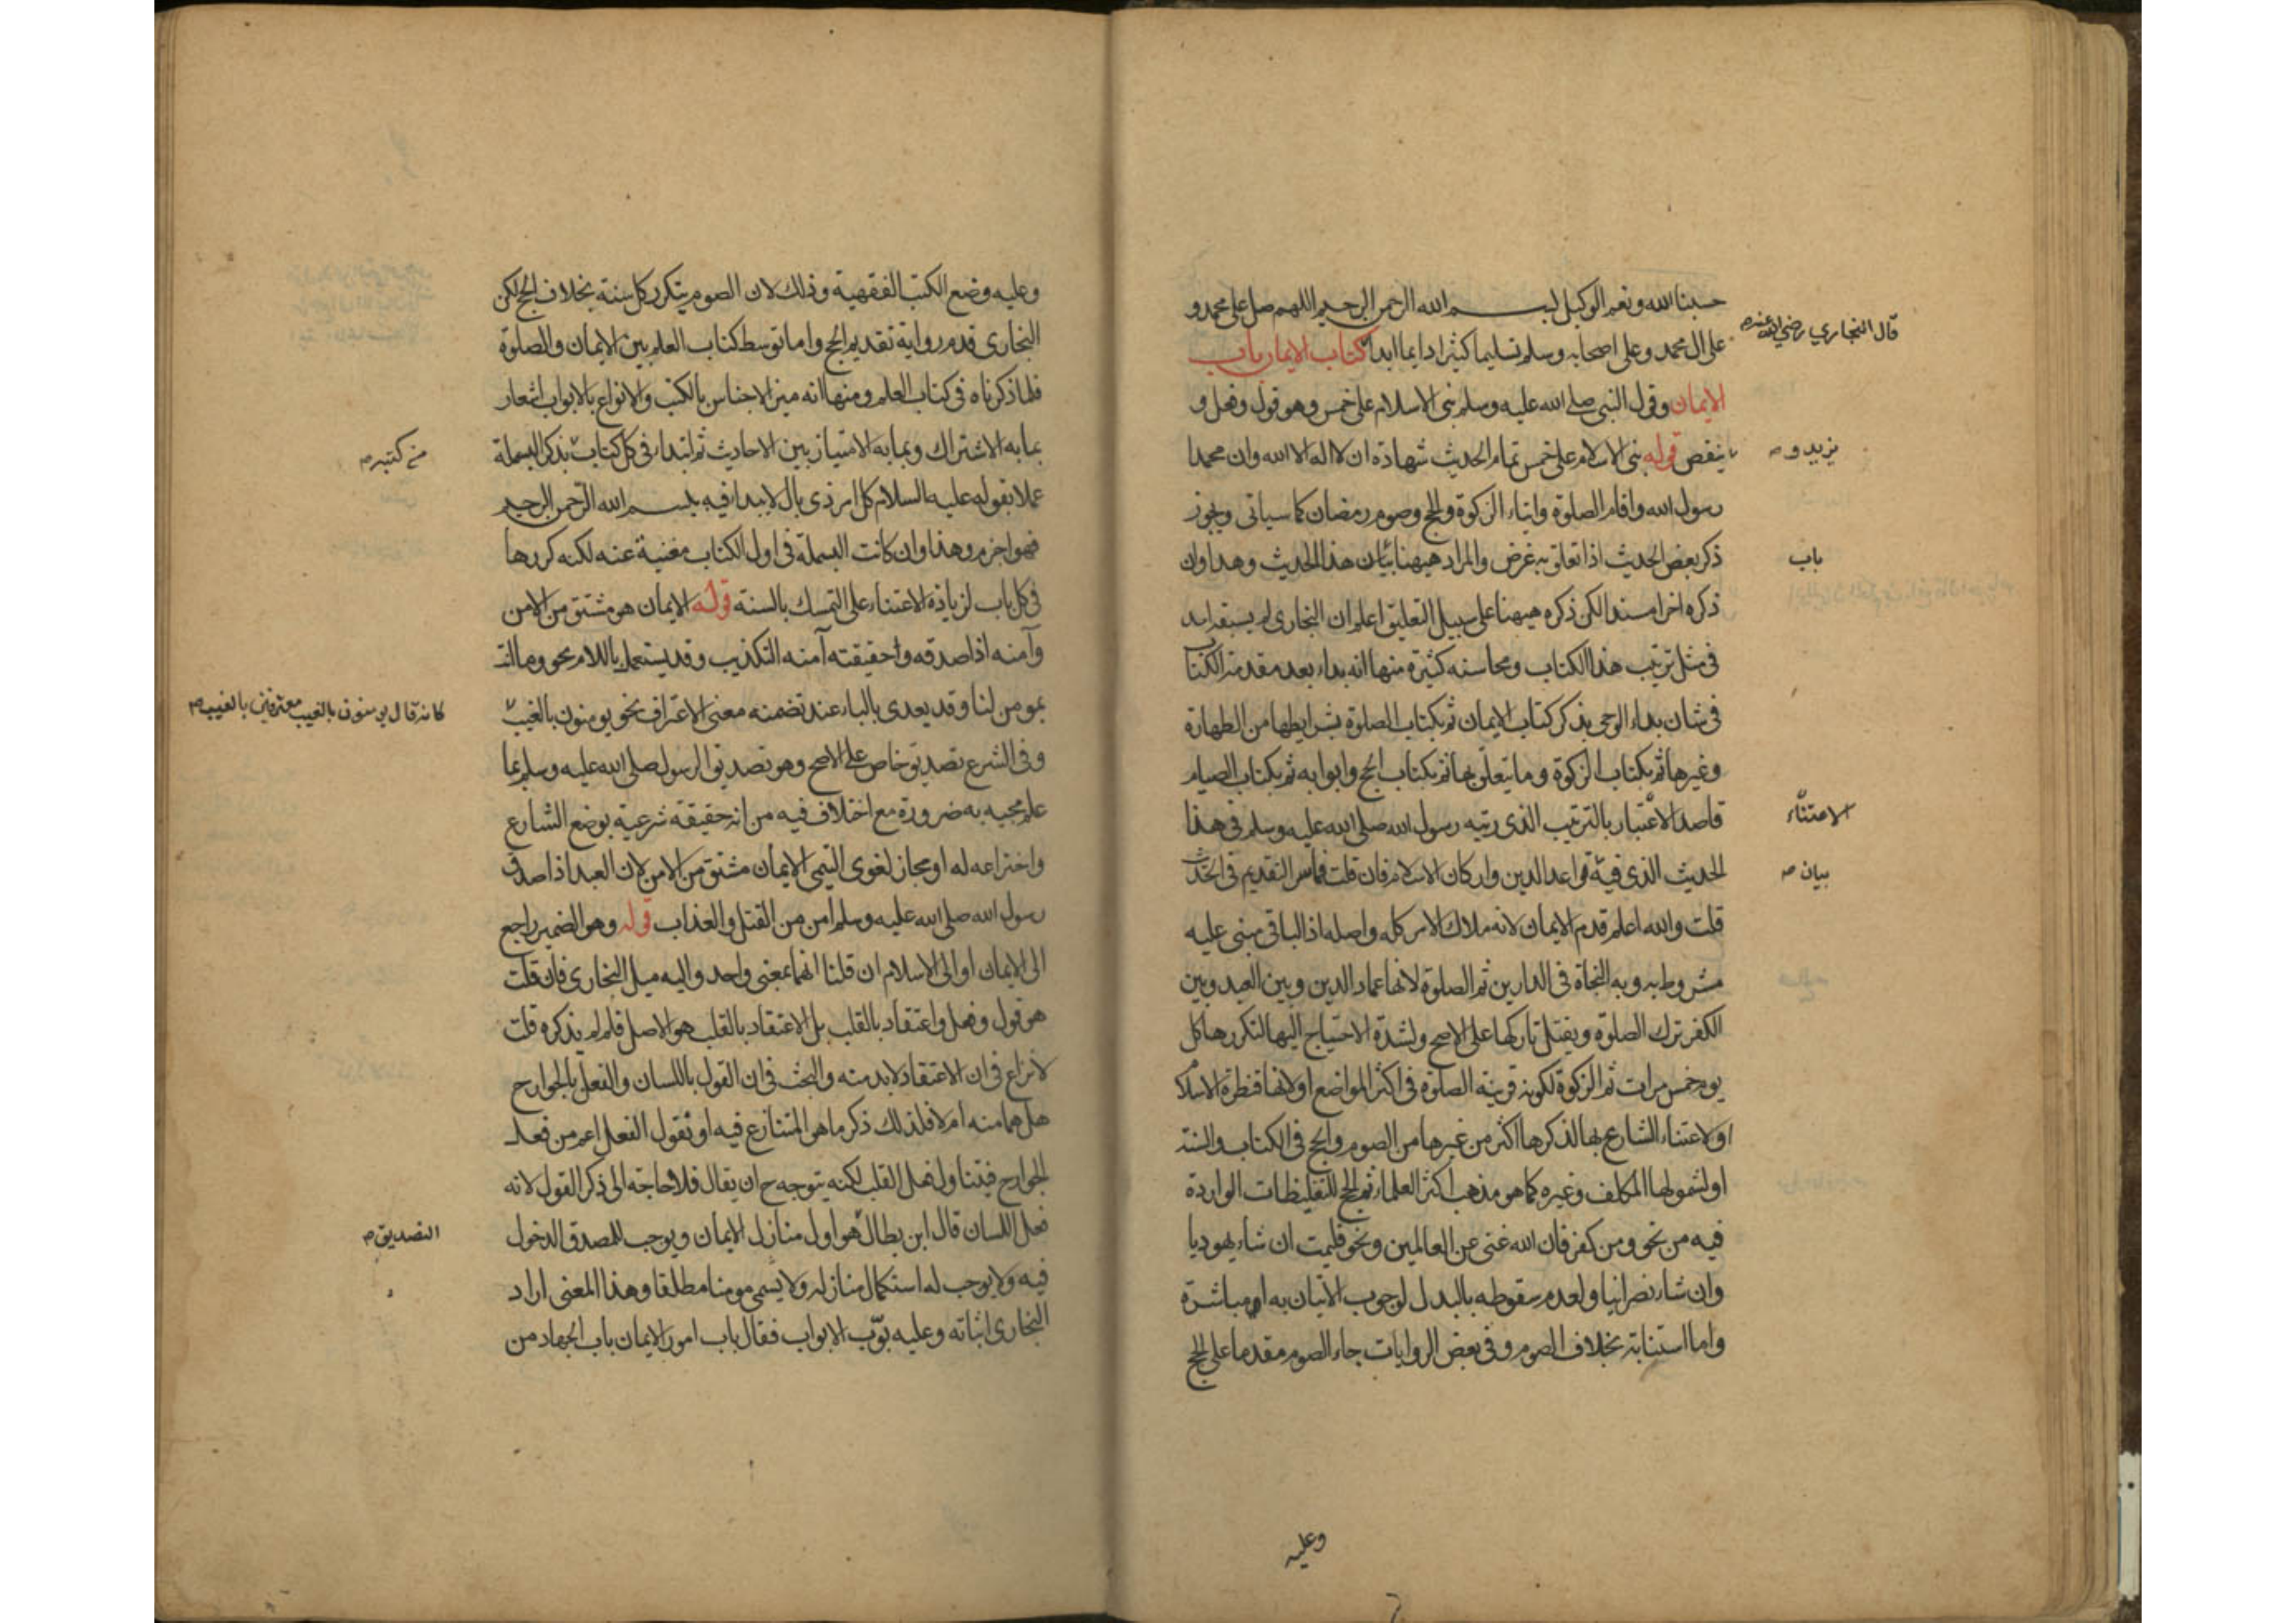 حسبنا الله ونعم الوكيل بسم الله الرحمن الرحيم اللهم صل على محمد و
قال البخاري رضي الله عنه
على ال محمد وعلى اصحابه وسلم تسليما كثيرا دايما ابدا كتاب الايمان باب
الايمان وقول النبي صلى الله عليه وسلم بنى الاسلام على خمس وهو قول وفعل و
ينقص قوله بنى الاسلام على خمس تمام الحديث شهادة ان لا اله الا الله وان محمدا
يزيد و
رسول الله واقام الصلوة وايتاء الزكوة والحج وصوم رمضان كما سياتى ويجوز
ذكر بعض الحديث اذا تعلق به غرض والمراد هيهنا بيان هذا الحديث وهذا وان
باب
ذكره اخرا مسندا لكن ذكره هيهنا على سبيل التعليق اعلم ان البخارى لم يسبقه احد
فى مثل ترتيب هذا الكتاب ومحاسنه كثيرة منها انه بداء بعد مقدمة الكتاب
فى شان بداء الوحى بذكر كتاب الايمان ثم بكتاب الصلوة بشرايطها من الطهارة
وغيرها ثم بكتاب الزكوة وما يتعلق بها ثم بكتاب الحج وابوابه ثم بكتاب الصيام
قاصدا الاعتبار بالترتيب الذى رتبه رسول الله صلى الله عليه وسلم فى هذا
الاعتناء
الحديث الذى فيه قواعد الدين واركان الاسلام فان قلت فما سر التقديم فى الحديث
بيان
قلت والله اعلم قدم الايمان لانه ملاك الامر كله واصله اذ الباقى مبنى عليه
مشروط به وبه النجاة فى الدارين ثم الصلوة لانها عماد الدين وبين العبد وبين
الكفر ترك الصلوة ويقتل تاركها على الاصح ولشدة الاحتياج اليها لتكررها كل
يوم خمس مرات ثم الزكوة لكونه قرينة الصلوة فى اكثر المواضع او لانها قنطرة الاسلام
او لاعتناء الشارع بها لذكرها اكثر من غيرها من الصوم والحج فى الكتاب والسنة
او لشمولها المكلف وغيره كما هو مذهب اكثر العلماء ثم الحج للتغليظات الواردة
فيه من نحو ومن كفر فان الله غنى عن العالمين ونحو فليمت ان شاء يهوديا
وان شاء نصرانيا ولعدم سقوطه بالبدل لوجوب الاتيان به او مباشرة
واما استنابة بخلاف الصوم وفى بعض الروايات جاء الصوم مقدما على الحج
وعليه
وعليه وضع الكتب الفقهية وذلك لان الصوم يتكرر كل سنة بخلاف الحج لكن
البخارى قدم رواية تقديم الحج واما توسط كتاب العلم بين الايمان والصلوة
فلما ذكرناه فى كتاب العلم ومنها انه ميز الاجناس بالكتب والانواع بالابواب اشعار
بما به الاشتراك وبما به الامتياز بين الاحاديث ثم ابتداء فى كل كتاب بذكر البسملة
من كتبه
عملا بقوله عليه السلام كل امر ذى بال لا يبداء فيه ببسم الله الرحمن الرحيم
فهو اجزم وهذا وان كانت البسملة فى اول الكتاب مغنية عنه لكنه كررها
فى كل باب لزيادة الاعتناء على التمسك بالسنة قوله الايمان هو مشتق من الامن
وآمنه اذا صدقه وحقيقته آمنه التكذيب وقد يستعمل باللام نحو وما انت
بمومن لنا وقد يعدى بالباء عند تضمنه معنى الاعتراف نحو يومنون بالغيب
كانه قال يومنون بالغيب معترفين بالغيب
وفى الشرع تصديق خاص على الاصح وهو تصديق الرسول صلى الله عليه وسلم بما
علم مجيه به ضرورة مع اختلاف فيه من انه حقيقة شرعية بوضع الشارع
واختراعه له او مجاز لغوى التيمى الايمان مشتق من الامن لان العبد اذا صدق
رسول الله صلى الله عليه وسلم امن من القتل والعذاب قوله وهو الضمير راجع
الى الايمان او الى الاسلام ان قلنا انهما بمعنى واحد واليه ميل البخارى فان قلت
هو قول وفعل واعتقاد بالقلب بل الاعتقاد بالقلب هو الاصل فلم لم يذكره قلت
لا نزاع فى ان الاعتقاد لابد منه والبحث فى ان القول باللسان والفعل بالجوارح
هل هما منه ام لا فلذلك ذكر ما هو المتنازع فيه او نقول الفعل اعم من فعل
الجوارح فيتناول فعل القلب لكنه يتوجه ح ان يقال فلا حاجة الى ذكر القول لانه
فعل اللسان قال ابن بطال هو اول منازل الايمان ويوجب للمصدق الدخول
التصديق
فيه ولا يوجب له استكمال منازله ولا يسمى مومنا مطلقا وهذا المعنى اراد
البخارى اثباته وعليه بوّب الابواب فقال باب امور الايمان باب الجهاد من